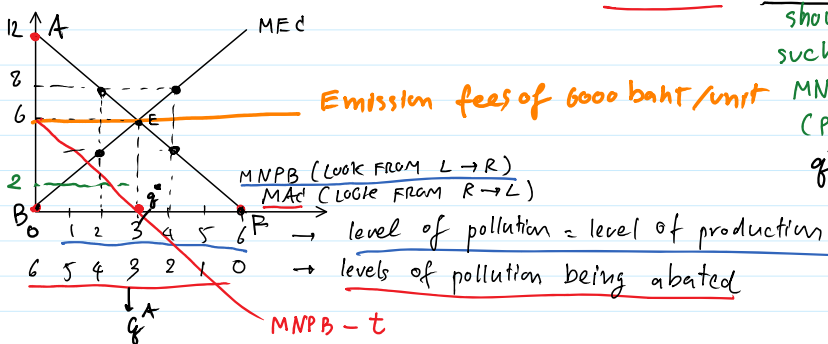 shou
12 A MEC
such
8
Emission fees of 6000 baht/unit MN
6 E
(P
MNPB (LOOK FROM L → R)
2 q*
MAC (LOOK FROM R → L)
B F
0 1 2 3 4 5 6 → level of pollution = level of production
6 5 4 3 2 1 0 → levels of pollution being abated
qA
MNPB - t